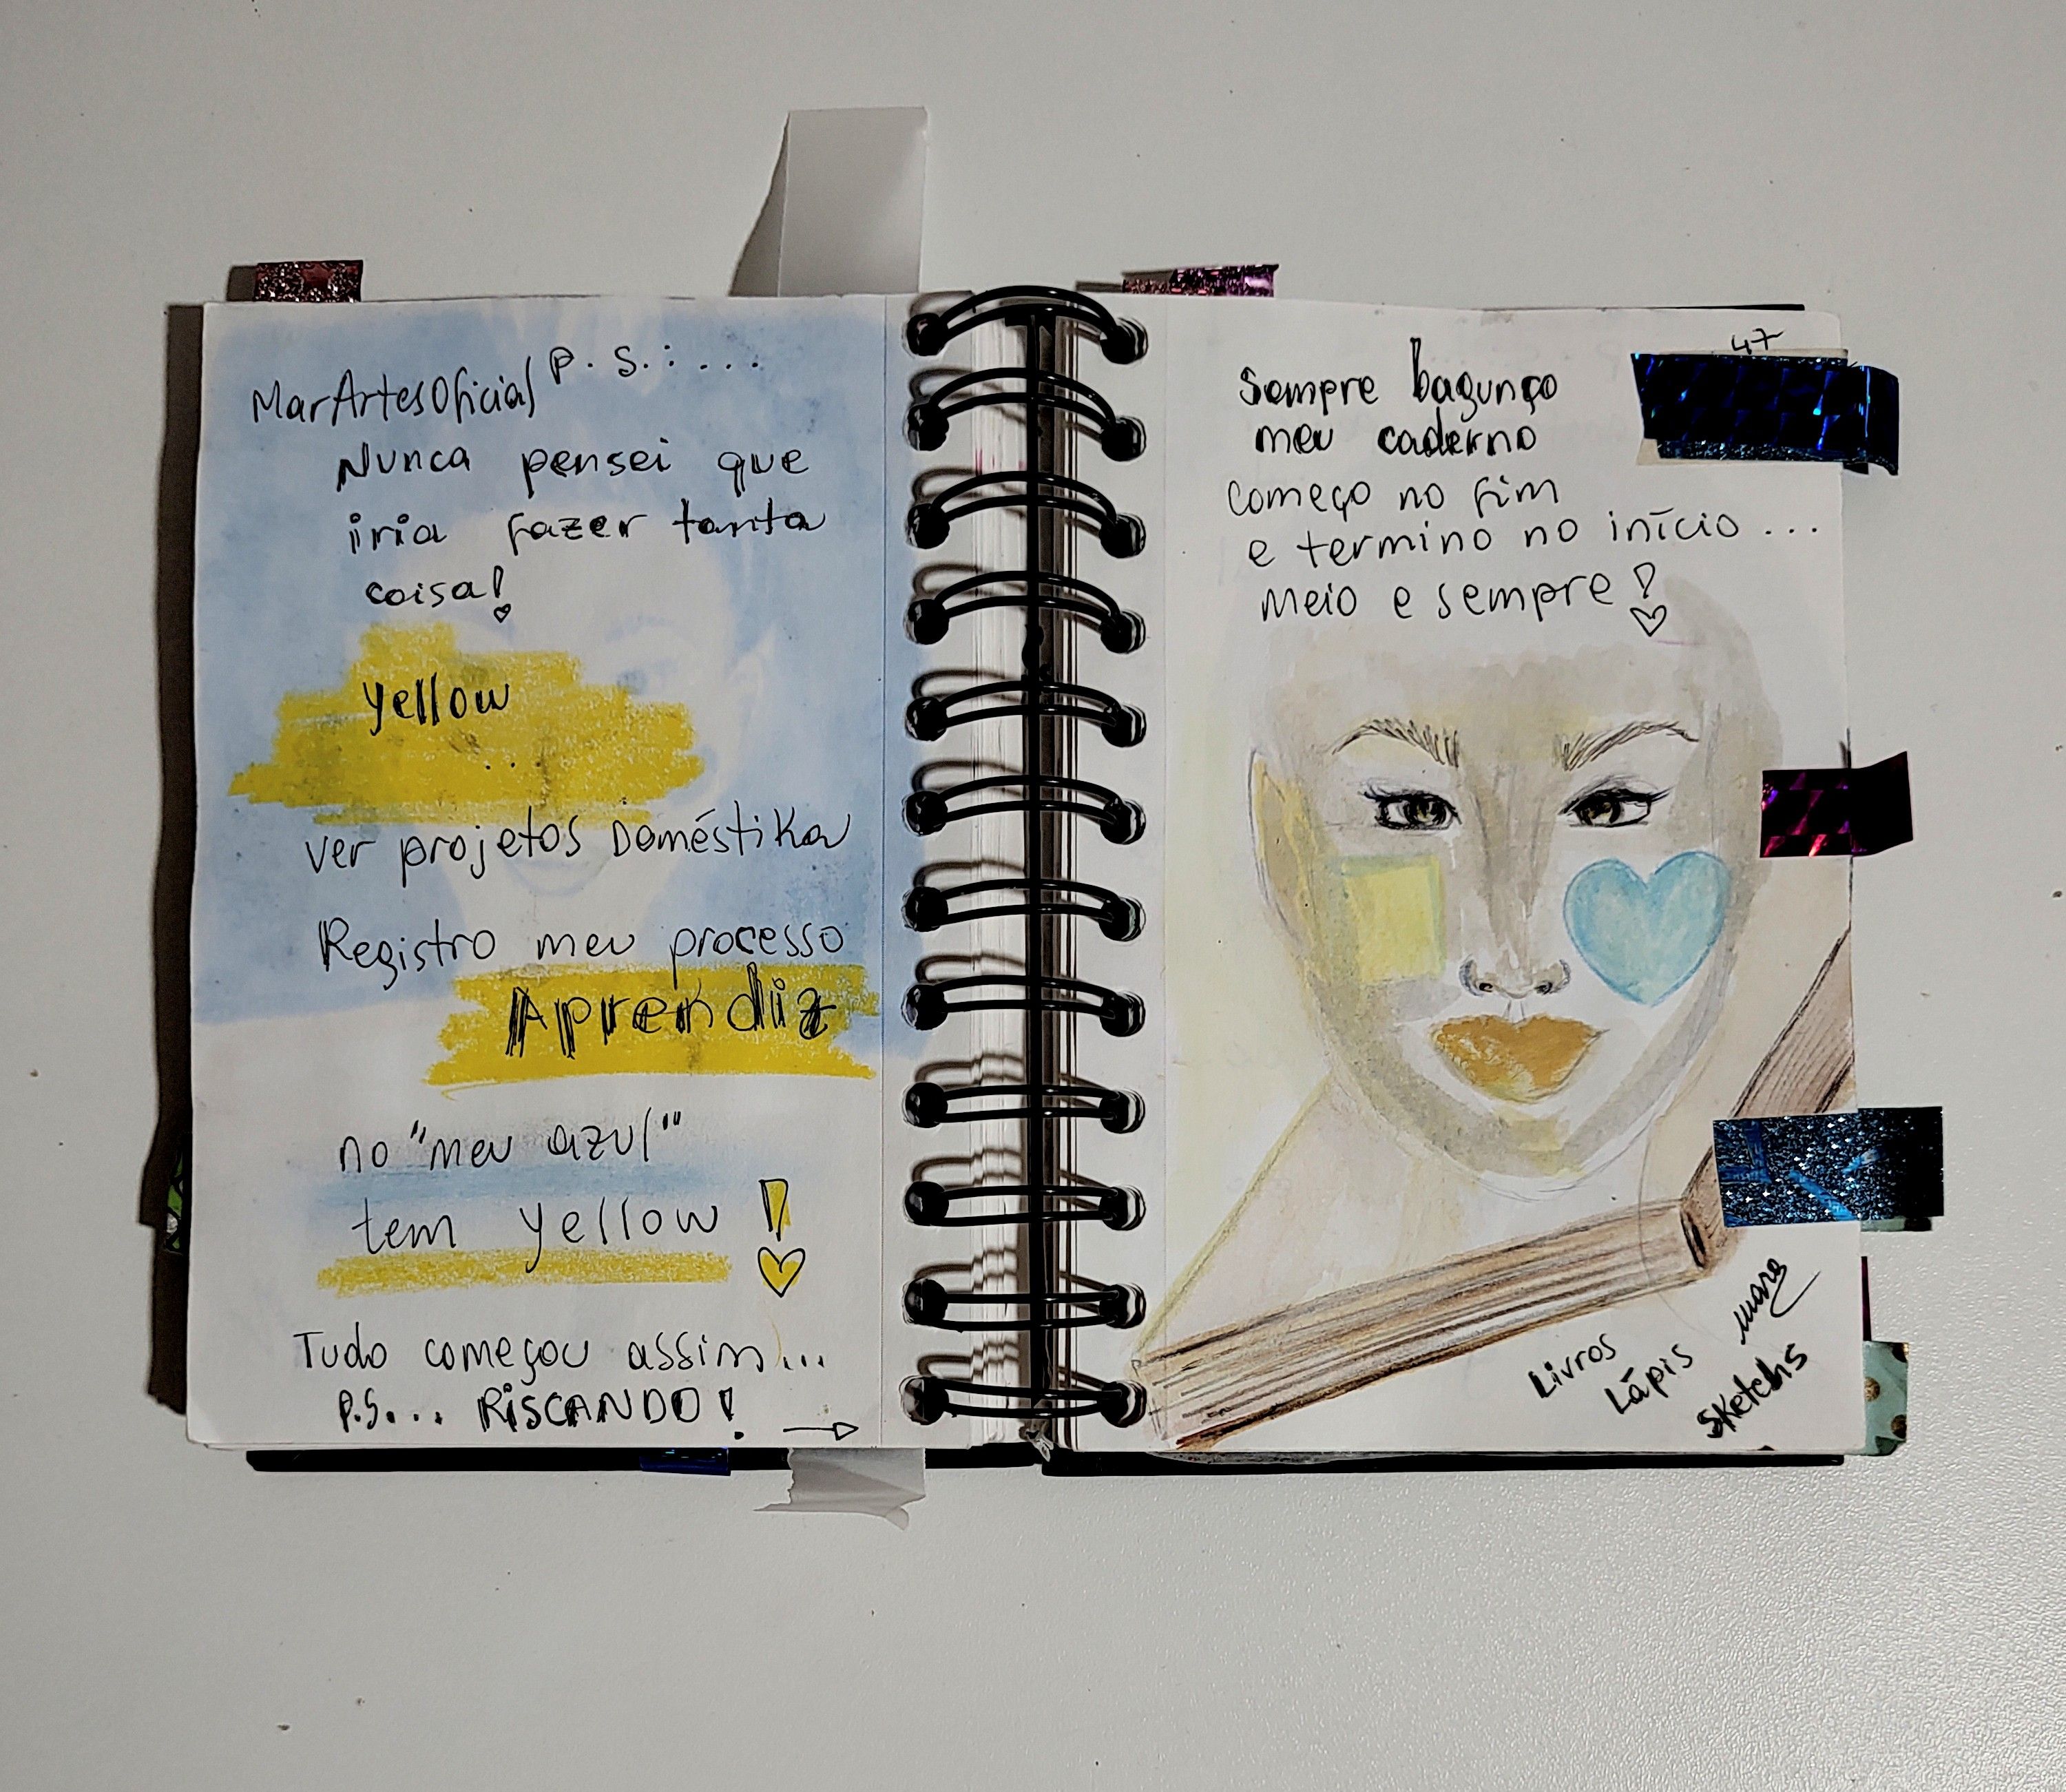 MarArtesOficial P.S.:...
Nunca pensei que
iria fazer tanta
coisa!
yellow
...
ver projetos Doméstika
Registro meu processo
Aprendiz
no "meu azul"
tem yellow!
Tudo começou assim...
P.S... RiSCANDO!
47
Sempre bagunço
meu caderno
começo no fim
e termino no início...
meio e sempre!
Livros
Lápis
Sketchs